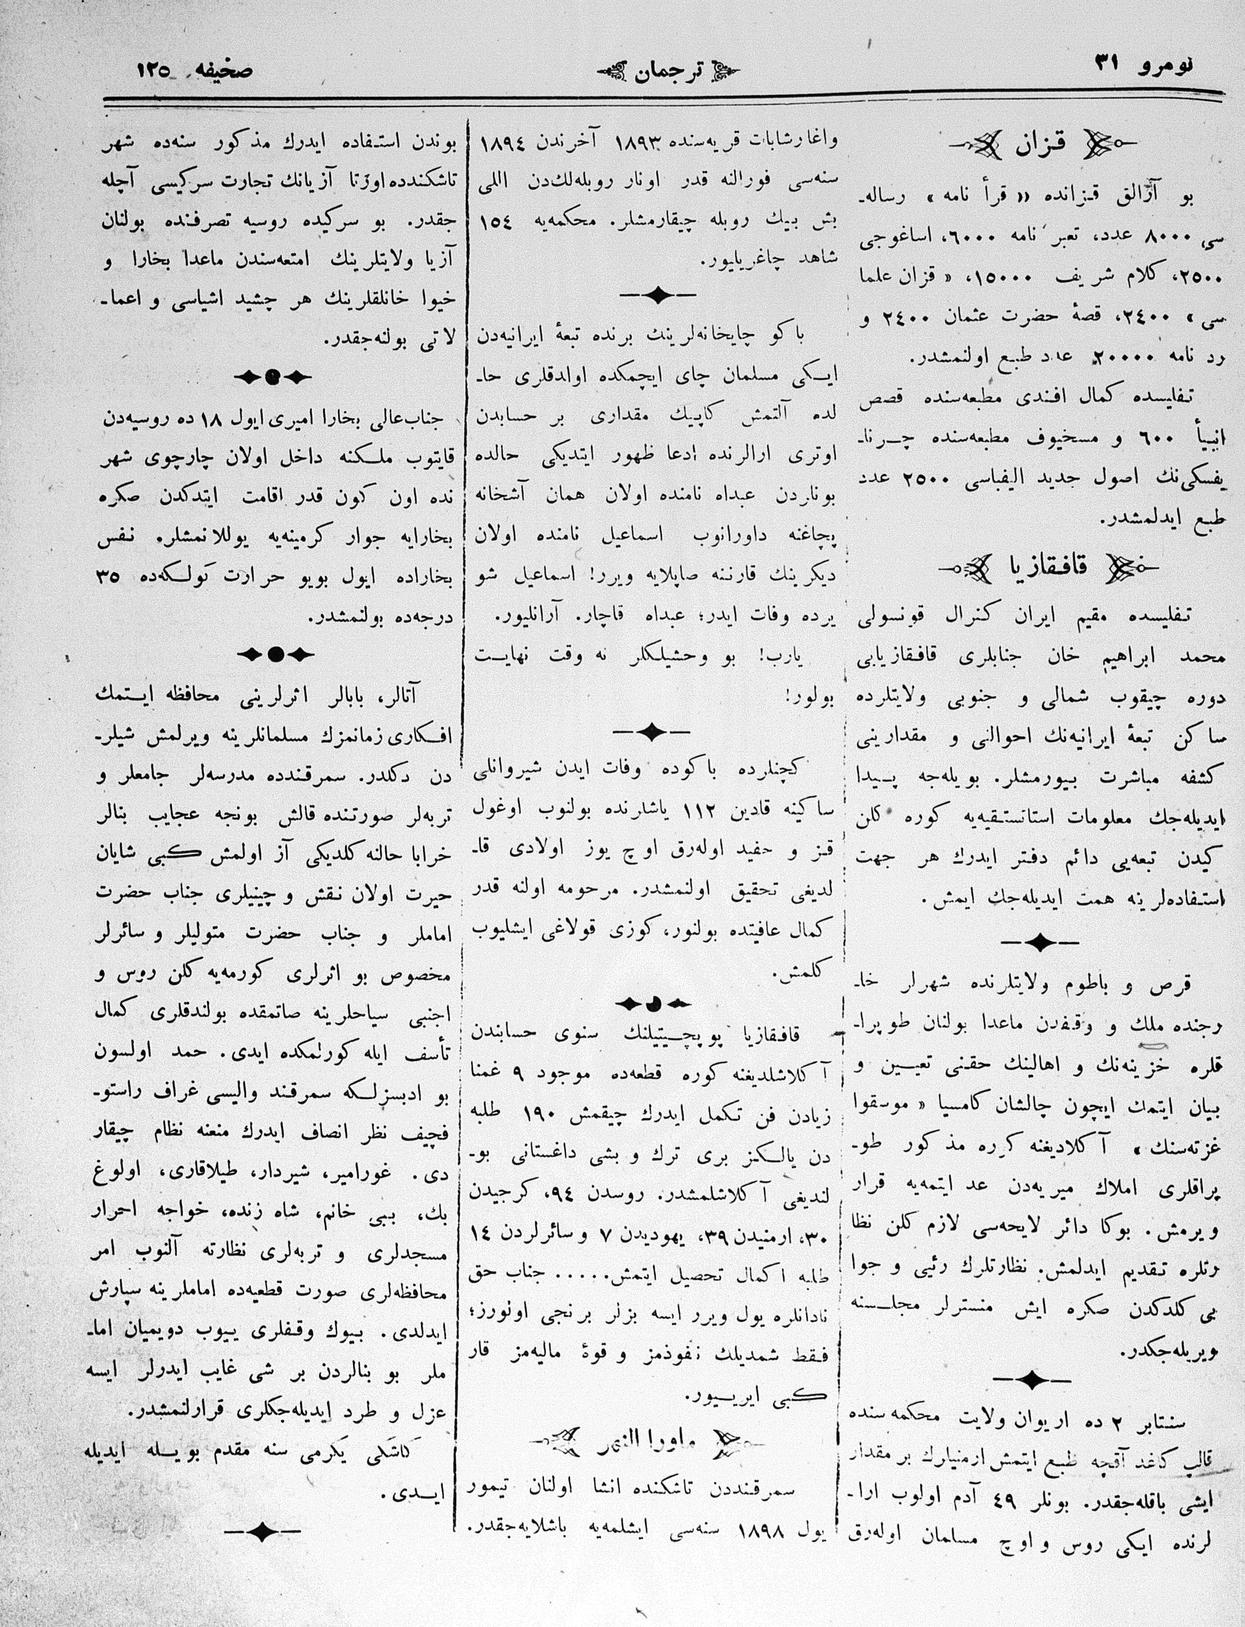 نومرو ٣١
ترجمان
صخيفه ١٢٥
قزان
بو آرالق قزانده «قرأ نامه» رساله‌ـ
سى ٨٠٠٠ عدد، تعبر نامه ٦٠٠٠، اساغوجى
٢٥٠٠، كلام شريف ١٥٠٠٠، «قزان علما
سى» ٢٤٠٠، قصهٔ حضرت عثمان ٢٤٠٠ و
رد نامه ٢٠٠٠٠ عدد طبع اولنمشدر.
تفليسده كمال افندى مطبعه‌سنده قصص
انبيأ ٦٠٠ و مسخيوف مطبعه‌سنده چرناـ
يفسكى‌نك اصول جديد اليفباسى ٢٥٠٠ عدد
طبع ايدلمشدر.
قافقازيا
تفليسده مقيم ايران كنرال قونسولى
محمد ابراهيم خان جنابلرى قافقازيايى
دوره چيقوب شمالى و جنوبى ولايتلرده
ساكن تبعهٔ ايرانيه‌نك احوالنى و مقدارينى
كشفه مباشرت بيورمشلر. بويله‌جه پيدا
ايديله‌جك معلومات استانستقيه‌يه كوره كلن
كيدن تبعه‌يى دائم دفتر ايدرك هر جهت
استفاده‌لرينه همت ايديله‌جك ايمش.
قرص و باطوم ولايتلرنده شهرلر خاـ
رجنده ملك و وقفدن ماعدا بولنان طوپراـ
قلره خزينه‌نك و اهالينك حقنى تعيين و
بيان ايتمك ايچون چالشان كامسيا «موسقوا
غزته‌سنك» آكلاديغنه كوره مذكور طوـ
پراقلرى املاك ميريه‌دن عد ايتمه‌يه قرار
ويرمش. بوكا دائر لايحه‌سى لازم كلن نظا
رتلره تقديم ايدلمش. نظارتلرك رئيى و جوا
بى كلدكدن صكره ايش منسترلر مجلسنه
ويريله‌جكدر.
سنتابر ٢ ده اريوان ولايت محكمه‌سنده
قالپ كاغد آقچه طبع ايتمش ارمنيارك بر مقدار
ايشى باقله‌جقدر. بونلر ٤٩ آدم اولوب اراـ
لرنده ايكى روس و اوچ مسلمان اوله‌رق
واغارشابات قريه‌سنده ١٨٩٣ آخرندن ١٨٩٤
سنه‌سى فورالنه قدر اونار روبله‌لك‌دن اللى
بش بيك روبله چيقارمشلر. محكمه‌يه ١٥٤
شاهد چاغريليور.
باكو چايخانه‌لرينك برنده تبعهٔ ايرانيه‌دن
ايكى مسلمان چاى ايچمكده اولدقلرى حاـ
لده آلتمش كاپيك مقدارى بر حسابدن
اوترى ارالرنده ادعا ظهور ايتديكى حالده
بونلردن عبداه نامنده اولان همان آشخانه
پچاغنه داورانوب اسماعيل نامنده اولان
ديكرينك قارننه صاپلايه ويرر! اسماعيل شو
يرده وفات ايدر؛ عبداه قاچار. آرانليور.
يارب! بو وحشيلكلر نه وقت نهايت
بولور!
كچنلرده باكوده وفات ايدن شيروانلى
ساكينه قادين ١١٢ ياشارنده بولنوب اوغول
قز و حفيد اوله‌رق اوچ يوز اولادى قاـ
لديغى تحقيق اولنمشدر. مرحومه اولنه قدر
كمال عافيتده بولنور، كوزى قولاغى ايشليوب
كلمش.
قافقازيا پوپچيتيلنك سنوى حسابندن
آكلاشلديغنه كوره قطعه‌ده موجود ٩ غمنا
زيادن فن تكمل ايدرك چيقمش ١٩٠ طلبه
دن يالكز برى ترك و بشى داغستانى بوـ
لنديغى آكلاشلمشدر. روسدن ٩٤، كرجيدن
٣٠، ارمنيدن ٣٩، يهوديدن ٧ و سائرلردن ١٤
طلبه اكمال تحصيل ايتمش..... جناب حق
نادانلره يول ويرر ايسه بزلر برنجى اولورز؛
فقط شمديلك نفوذمز و قوهٔ ماليه‌مز قار
كبى ايريور.
ماورا النهر
سمرقنددن تاشكنده انشا اولنان تيمور
يول ١٨٩٨ سنه‌سى ايشلمه‌يه باشلايه‌جقدر.
بوندن استفاده ايدرك مذكور سنه‌ده شهر
تاشكندده اورتا آزيانك تجارت سركيسى آچله
جقدر. بو سركيده روسيه تصرفنده بولنان
آزيا ولايتلرينك امتعه‌سندن ماعدا بخارا و
خيوا خانلقلرينك هر چشيد اشياسى و اعماـ
لاتى بولنه‌جقدر.
جناب‌عالى بخارا اميرى ايول ١٨ ده روسيه‌دن
قايتوب ملكنه داخل اولان چارچوى شهر
نده اون كون قدر اقامت ايتدكدن صكره
بخارايه جوار كرمينه‌يه يوللانمشلر. نفس
بخاراده ايول بويو حرارت كولكه‌ده ٣٥
درجه‌ده بولنمشدر.
آتالر، بابالر اثرلرينى محافظه ايتمك
افكارى زمانمزك مسلمانلرينه ويرلمش شيلرـ
دن دكلدر. سمرقندده مدرسه‌لر جامعلر و
تربه‌لر صورتنده قالش بونجه عجايب بنالر
خرابا حالنه كلديكى آز اولمش كبى شايان
حيرت اولان نقش و چينيلرى جناب حضرت
اماملر و جناب حضرت متوليلر و سائرلر
مخصوص بو اثرلرى كورمه‌يه كلن روس و
اجنبى سياحلرينه صاتمقده بولندقلرى كمال
تأسف ايله كورلمكده ايدى. حمد اولسون
بو ادبسزلكه سمرقند واليسى غراف راستوـ
فچيف نظر انصاف ايدرك منعنه نظام چيقار
دى. غورامير، شيردار، طيلاقارى، اولوغ
بك، بيبى خانم، شاه زنده، خواجه احرار
مسجدلرى و تربه‌لرى نظارته آلنوب امر
محافظه‌لرى صورت قطعيه‌ده اماملرينه سپارش
ايدلدى. بيوك وقفلرى ييوب دويميان اماـ
ملر بو بنالردن بر شى غايب ايدرلر ايسه
عزل و طرد ايديله‌جكلرى قرارلنمشدر.
كاشكى يكرمى سنه مقدم بويله ايديله
ايدى.